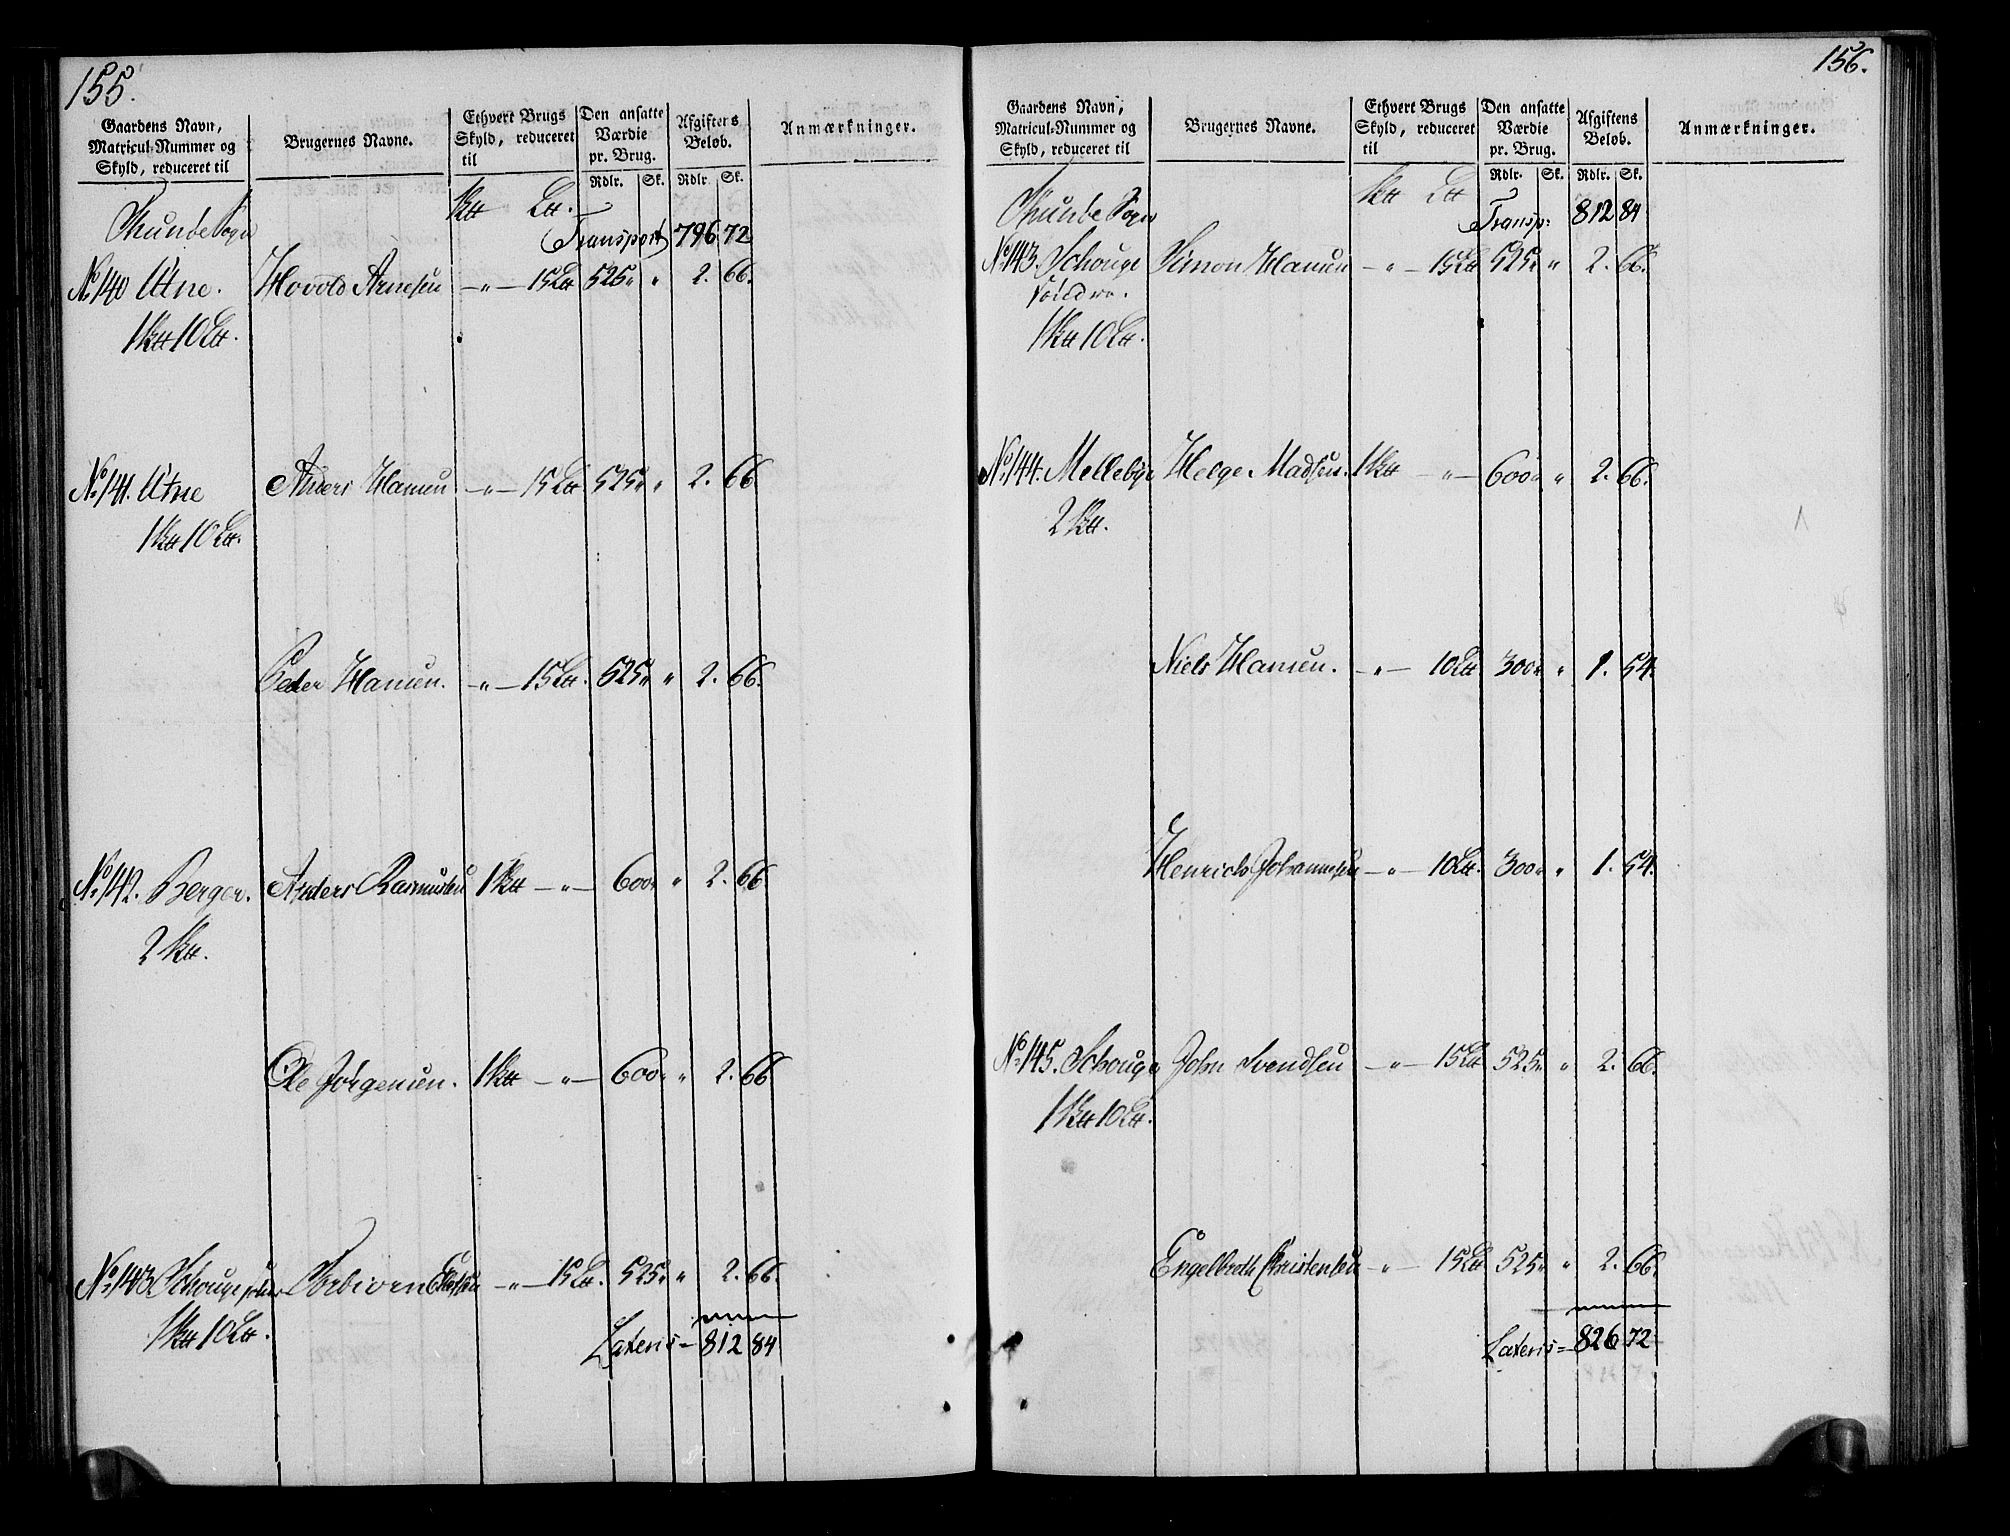 155.
Gaardens Navn, Matricul-Nummer og Skyld, reduceret til | Brugernes Navne. | Ethvert Brugs Skyld, reduceret til | Den ansatte Værdie pr. Brug. Rdlr. Sk. | Afgiftens Beløb. Rdlr. Sk. | Anmærkninger.
Thunde Sogn
Transport 796 72
No 140 Utne. Hovold Arnesen — " — 15 Ltt 525 " " 2. 66.
1 ktt 10 Ltt.
No 141. Utne Anders Hansen — " — 15 Ltt 525 " " 2. 66
1 ktt 10 Ltt.
Peder Hansen. — " — 15 Ltt. 525 " " 2. 66.
No 142. Berger. Anders Rasmusen 1 ktt — " — 600 " " 2. 66
2 ktt.
Ole Jørgensen. 1 ktt — " — 600 " " 2. 66
No 143 Schouge Torbiørn — " — 15 Ltt. 525 " " 2. 66.
1 ktt 10 Ltt.
Lateris = 812 84
156.
Gaardens Navn, Matricul-Nummer og Skyld, reduceret til | Brugernes Navne. | Ethvert Brugs Skyld, reduceret til | Den ansatte Værdie pr. Brug. Rdlr. Sk. | Afgiftens Beløb. Rdlr. Sk. | Anmærkninger.
ktt Ltt
Thunde Sogn Transp: 812 84
No 143. Schouge Simon Hansen — " — 15 Ltt 525 " " 2. 66.
1 ktt 10 Ltt.
No 144. Mellebye Helge Madsen. 1 ktt — " — 600 " " 2. 66.
2 ktt.
Niels Hansen. — " — 10 Ltt 300 " " 1. 54.
Henrich Johannesen — " — 10 Ltt. 300 " " 1. 54.
No 145. Schouge John Svendsen — " — 15 Ltt 525 " " 2. 66.
1 ktt 10 Ltt.
Engelbreth Christensen — " — 15 Ltt 525 " " 2. 66.
Lateris = 826 72